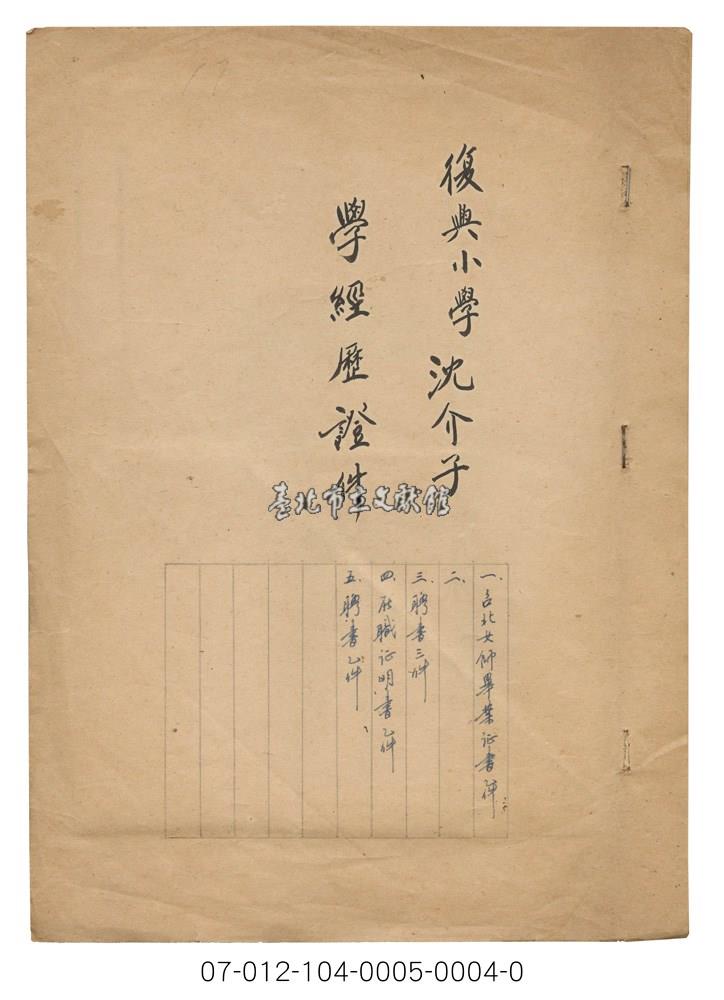 復興小學 沈介子
學經歷證件
臺北市立文獻館
一、台北女師畢業证書乙件
二、
三、聘書三件
四、在職证明書乙件
五、聘書乙件
07-012-104-0005-0004-0